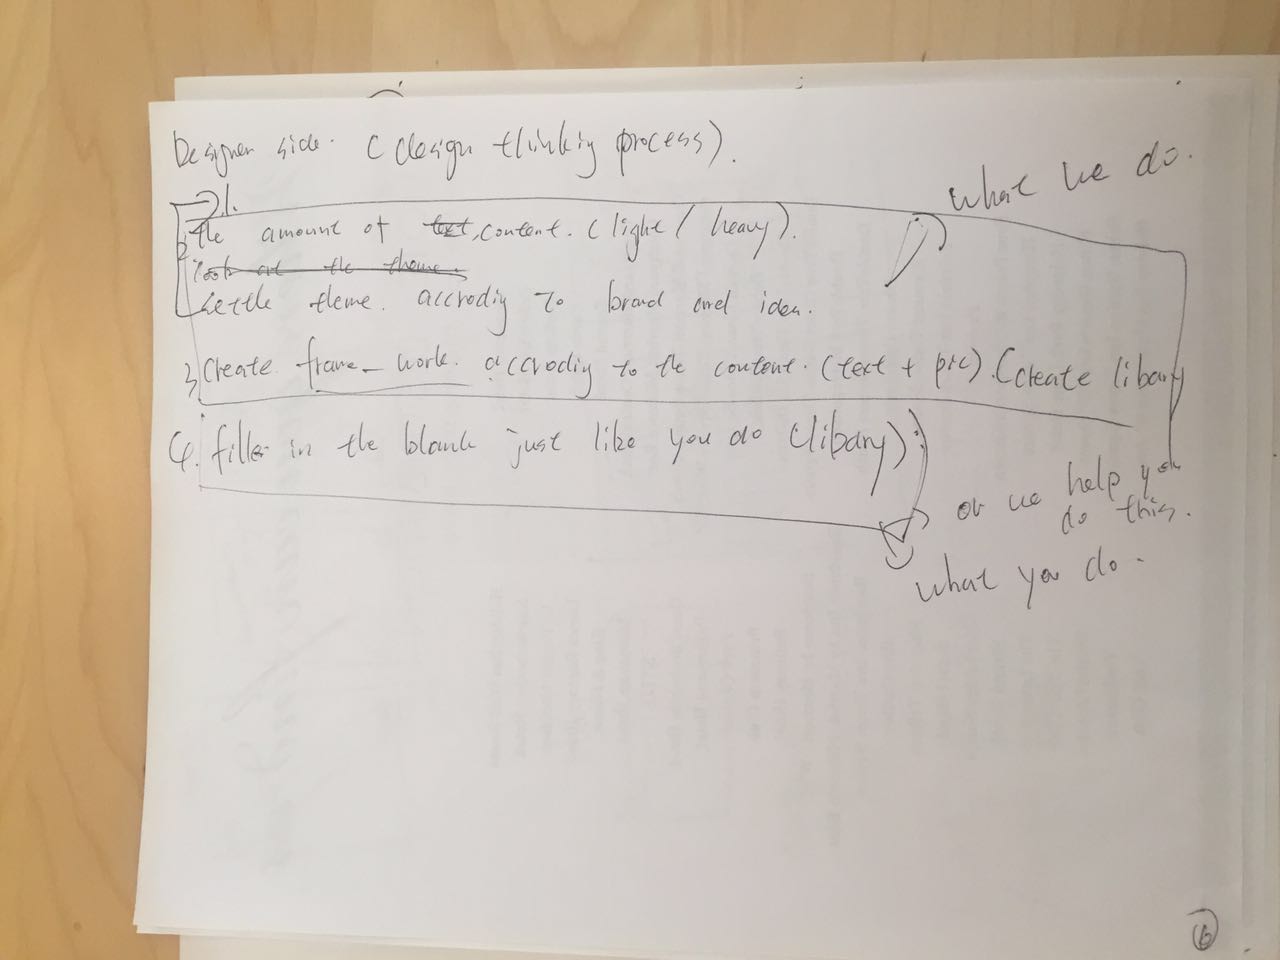 Designer side. (design thinkiy process).
what we do.
1.
the amount of text, content. (light / heavy).
2 look at the theme.
settle theme. accrodiy to brand and idea.
3, create frame_work. accrodiy to the content. (text + pic). (create libary
4. filler in the blank just like you do (libary).
or we help you
do this.
what you do.
6